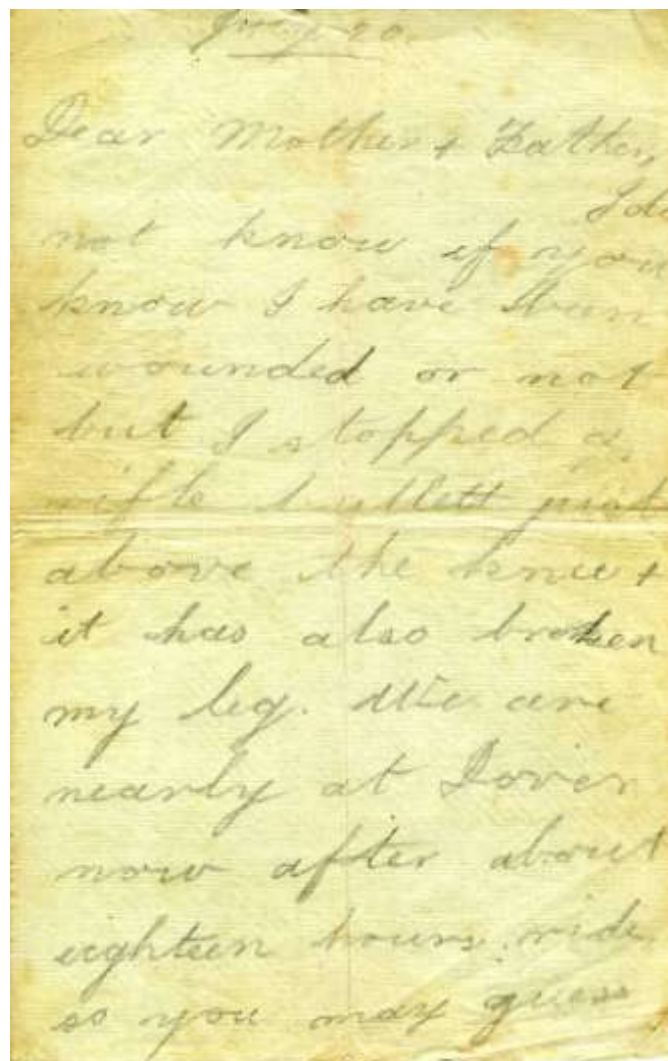 Dear Mother + Father,
I do
not know if you
know I have been
wounded or not
but I stopped a
rifle bullett just
above the knee +
it has also broken
my leg. We are
nearly at Dover
now after about
eighteen hours ride
so you may guess